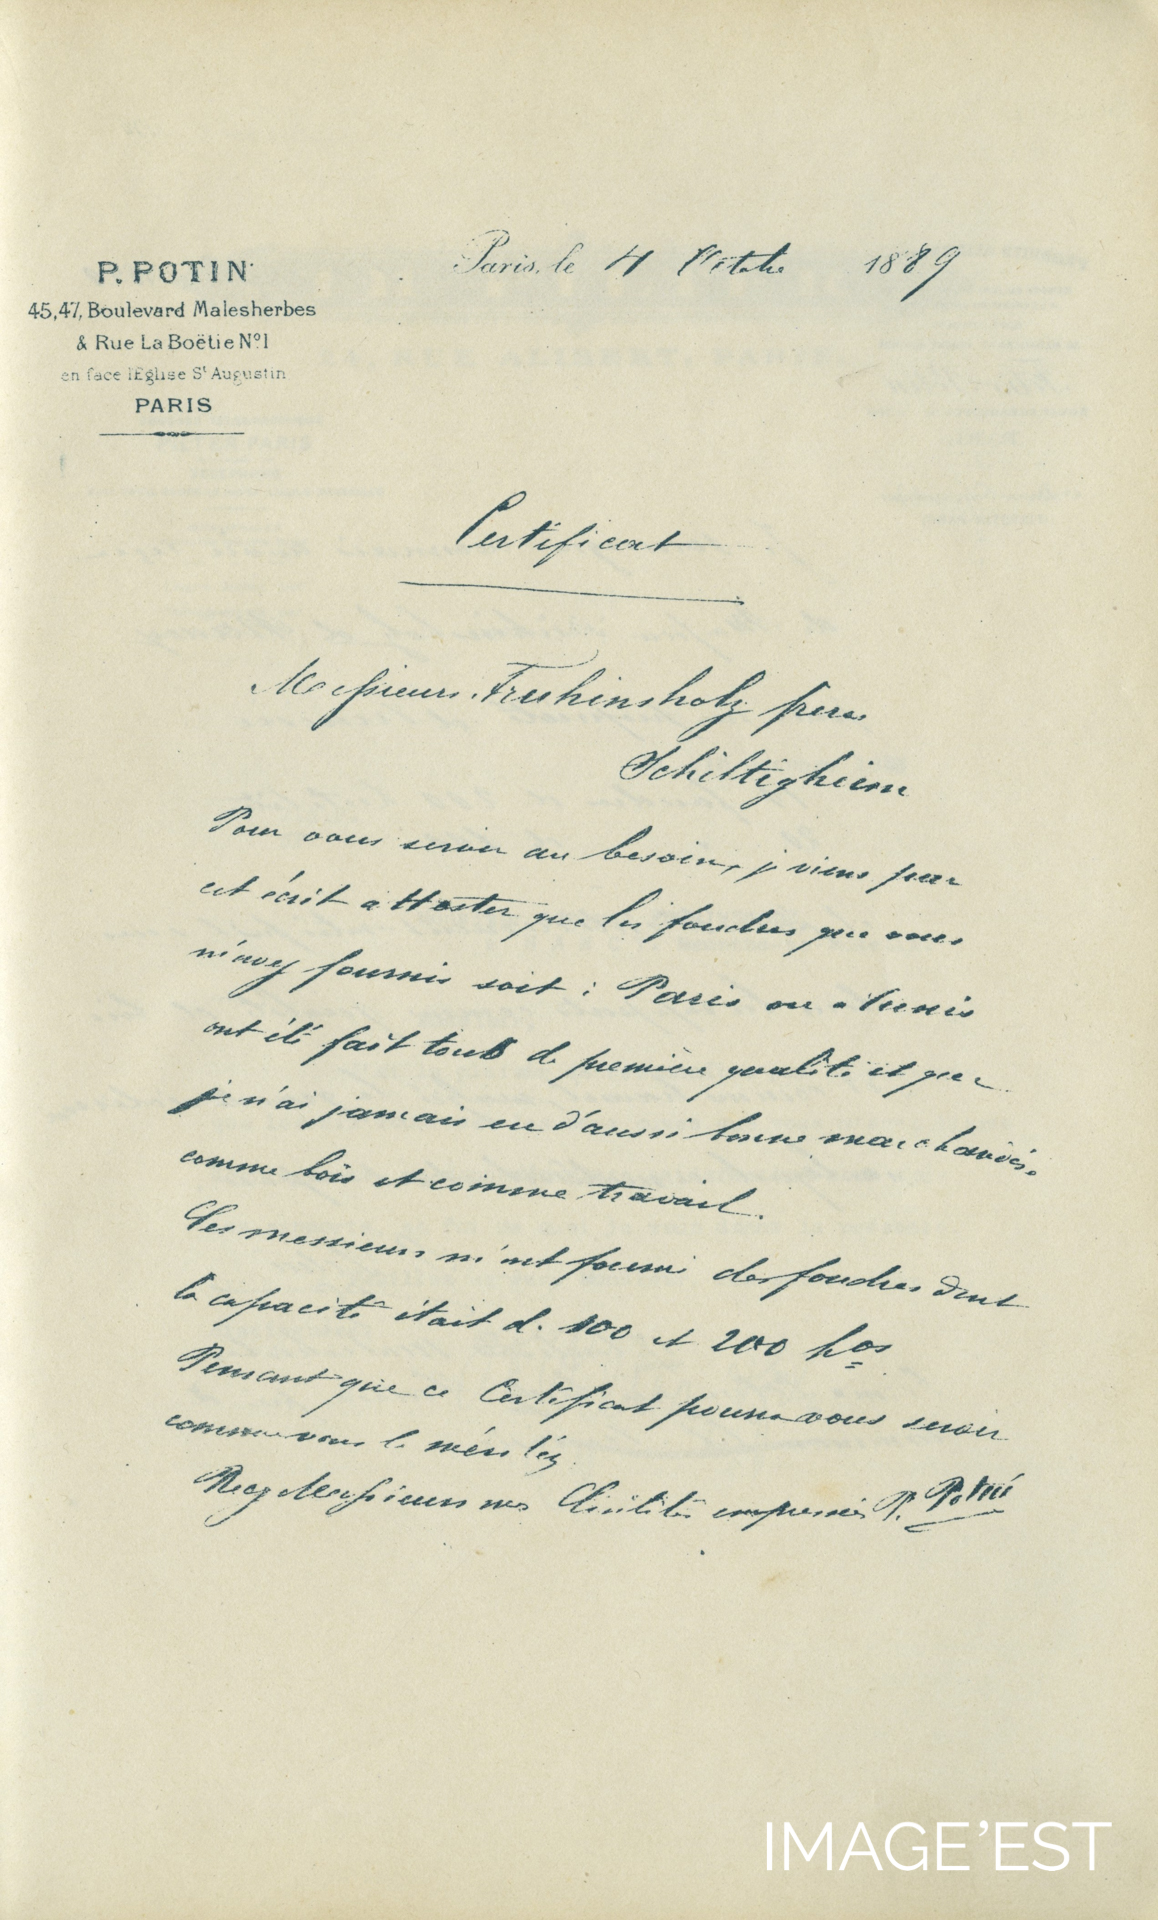 P. POTIN
45,47, Boulevard Malesherbes
& Rue La Boëtie N°1
en face l'Eglise St Augustin
PARIS
Paris, le 4 Octobre 1889
Certificat
Messieurs Fruhinsholz frères
Schiltigheim
Pour vous servir au besoin, je viens par
cet écrit attester que les foudres que vous
m'avez fournis soit : Paris ou a Tunis
ont été fait tous de première qualité et que
je n'ai jamais eu d'aussi bonne marchandise
comme bois et comme travail.
Ces messieurs m'ont fourni des foudres dont
la capacité était de 100 et 200 hos
Pensant que ce Certificat pourra vous servir
comme vous le méritez
Recez Messieurs mes Civilités empressées P. Potin
IMAGE'EST